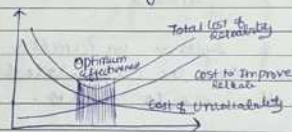 Total Cost of
Reliability
Optimum
effectiveness
Cost to Improve
Reliab
Cost of Unreliability